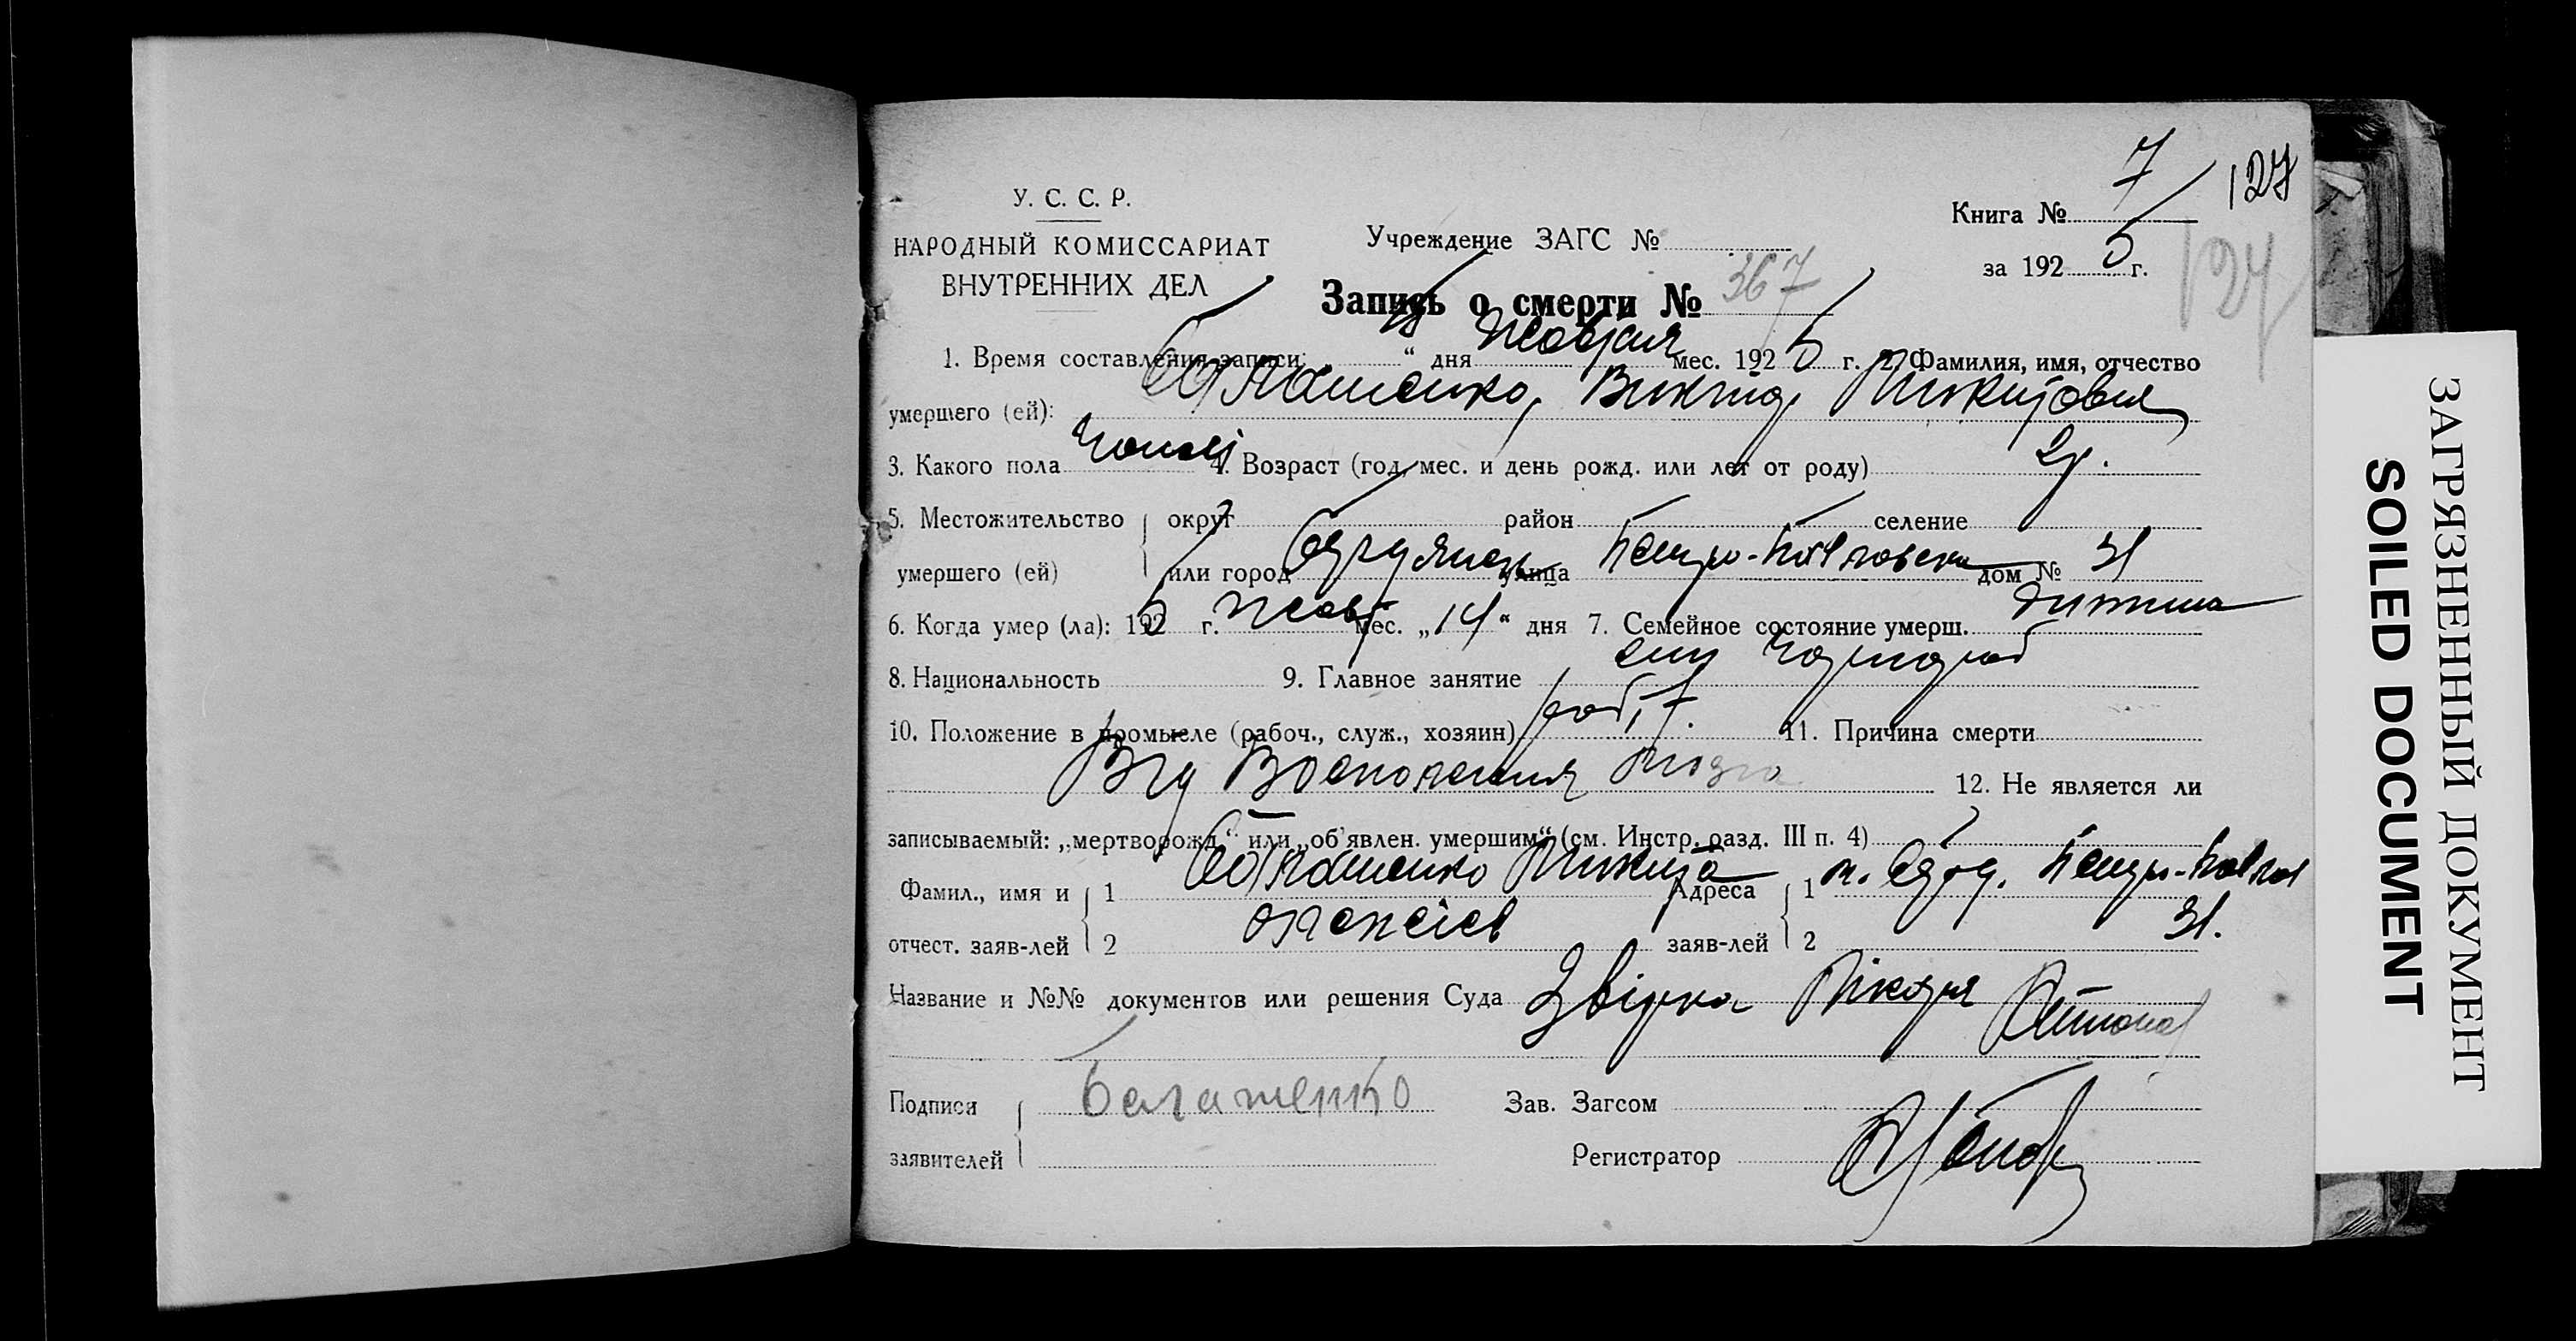 У. С. С. Р.
НАРОДНЫЙ КОМИССАРИАТ
ВНУТРЕННИХ ДЕЛ
Учреждение ЗАГС №
Книга № 7
127
за 192 5 г.
127
Запись о смерти № 367
1. Время составления записи: 15 “ дня Жовтня мес. 192 5 г. 2. Фамилия, имя, отчество
умершего (ей): Балашенко, Виктор Микитович
3. Какого пола чолов 4. Возраст (год, мес. и день рожд. или лет от роду) 2 р.
5. Местожительство округ район селение
умершего (ей) или город Бердянськ улица Петро-Павловська дом № 31
6. Когда умер (ла): 192 5 г. Жовт мес. „ 14 “ дня 7. Семейное состояние умерш. дитина
8. Национальность 9. Главное занятие син
10. Положение в промысле (рабоч., служ., хозяин) робіт. 11. Причина смерти
Від Воспаления мозга 12. Не является ли
записываемый: „мертворожд“ или „об'явлен. умершим“ (см. Инстр. разд. III п. 4)
Фамил., имя и 1 Балашенко Микита Адреса 1 м. Берд. Петро-Павлов
отчест. заяв-лей 2 заяв-лей 2 31.
Название и №№ документов или решения Суда Звідка Лікаря
Подписи Балашенко Зав. Загсом
заявителей Регистратор
ЗАГРЯЗНЕННЫЙ ДОКУМЕНТ
SOILED DOCUMENT